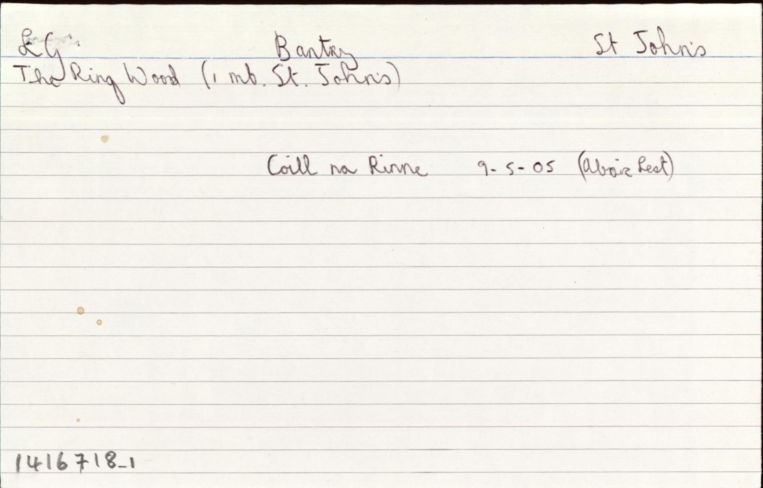 LG Bantry St John's
The Ring Wood (i mb. St. John's)
Coill na Rinne 9-5-05 (
1416718_1